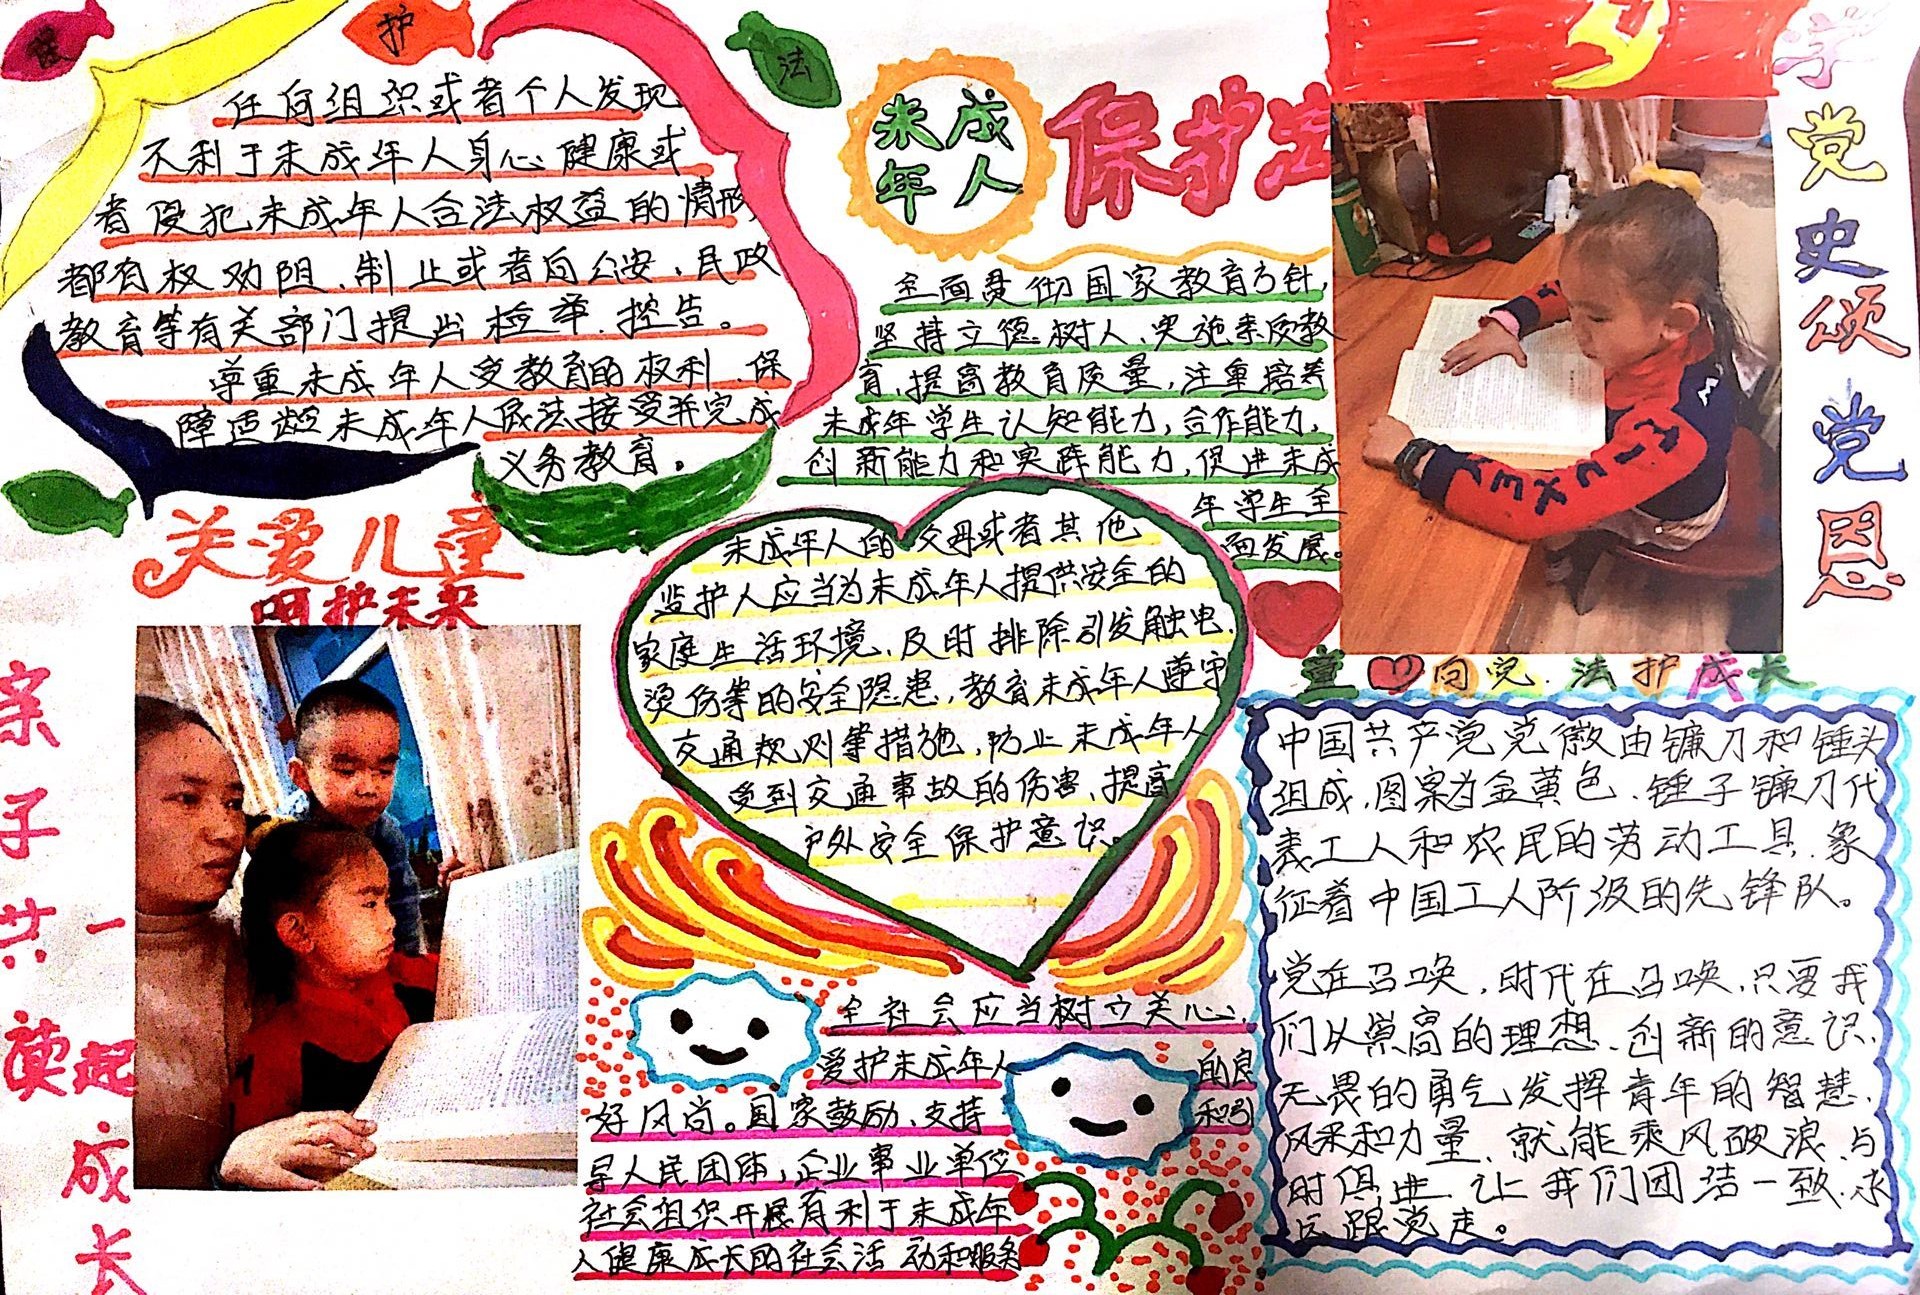 护
法
任何组织或者个人发现
不利于未成年人身心健康或
者侵犯未成年人合法权益的情形
都有权劝阻、制止或者向公安、民政
教育等有关部门提出检举、控告。
尊重未成年人受教育的权利、保
障适龄未成年人依法接受并完成
义务教育。
未成
年人
保护法
全面贯彻国家教育方针,
坚持立德树人、实施素质教
育,提高教育质量,注重培养
未成年学生认知能力,合作能力,
创新能力和实践能力,促进未成
年学生全
面发展。
学党史颂党恩
关爱儿童
呵护未来
亲子共读
一起成长
未成年人的父母或者其他
监护人应当为未成年人提供安全的
家庭生活环境、及时排除引发触电、
烫伤等的安全隐患,教育未成年人遵守
交通规则等措施,防止未成年人
受到交通事故的伤害、提高
户外安全保护意识。
童心向党.法护成长
中国共产党党徽由镰刀和锤头
组成,图案为金黄色、锤子镰刀代
表工人和农民的劳动工具、象
征着中国工人阶级的先锋队。
党在召唤,时代在召唤,只要我
们从崇高的理想、创新的意识、
无畏的勇气发挥青年的智慧、
风采和力量、就能乘风破浪、与
时俱进、让我们团结一致、永
远跟党走。
全社会应当树立关心、
爱护未成年人的良
好风尚。国家鼓励、支持和引
导人民团体,企业事业单位
社会组织开展有利于未成年
人健康成长的社会活动和服务